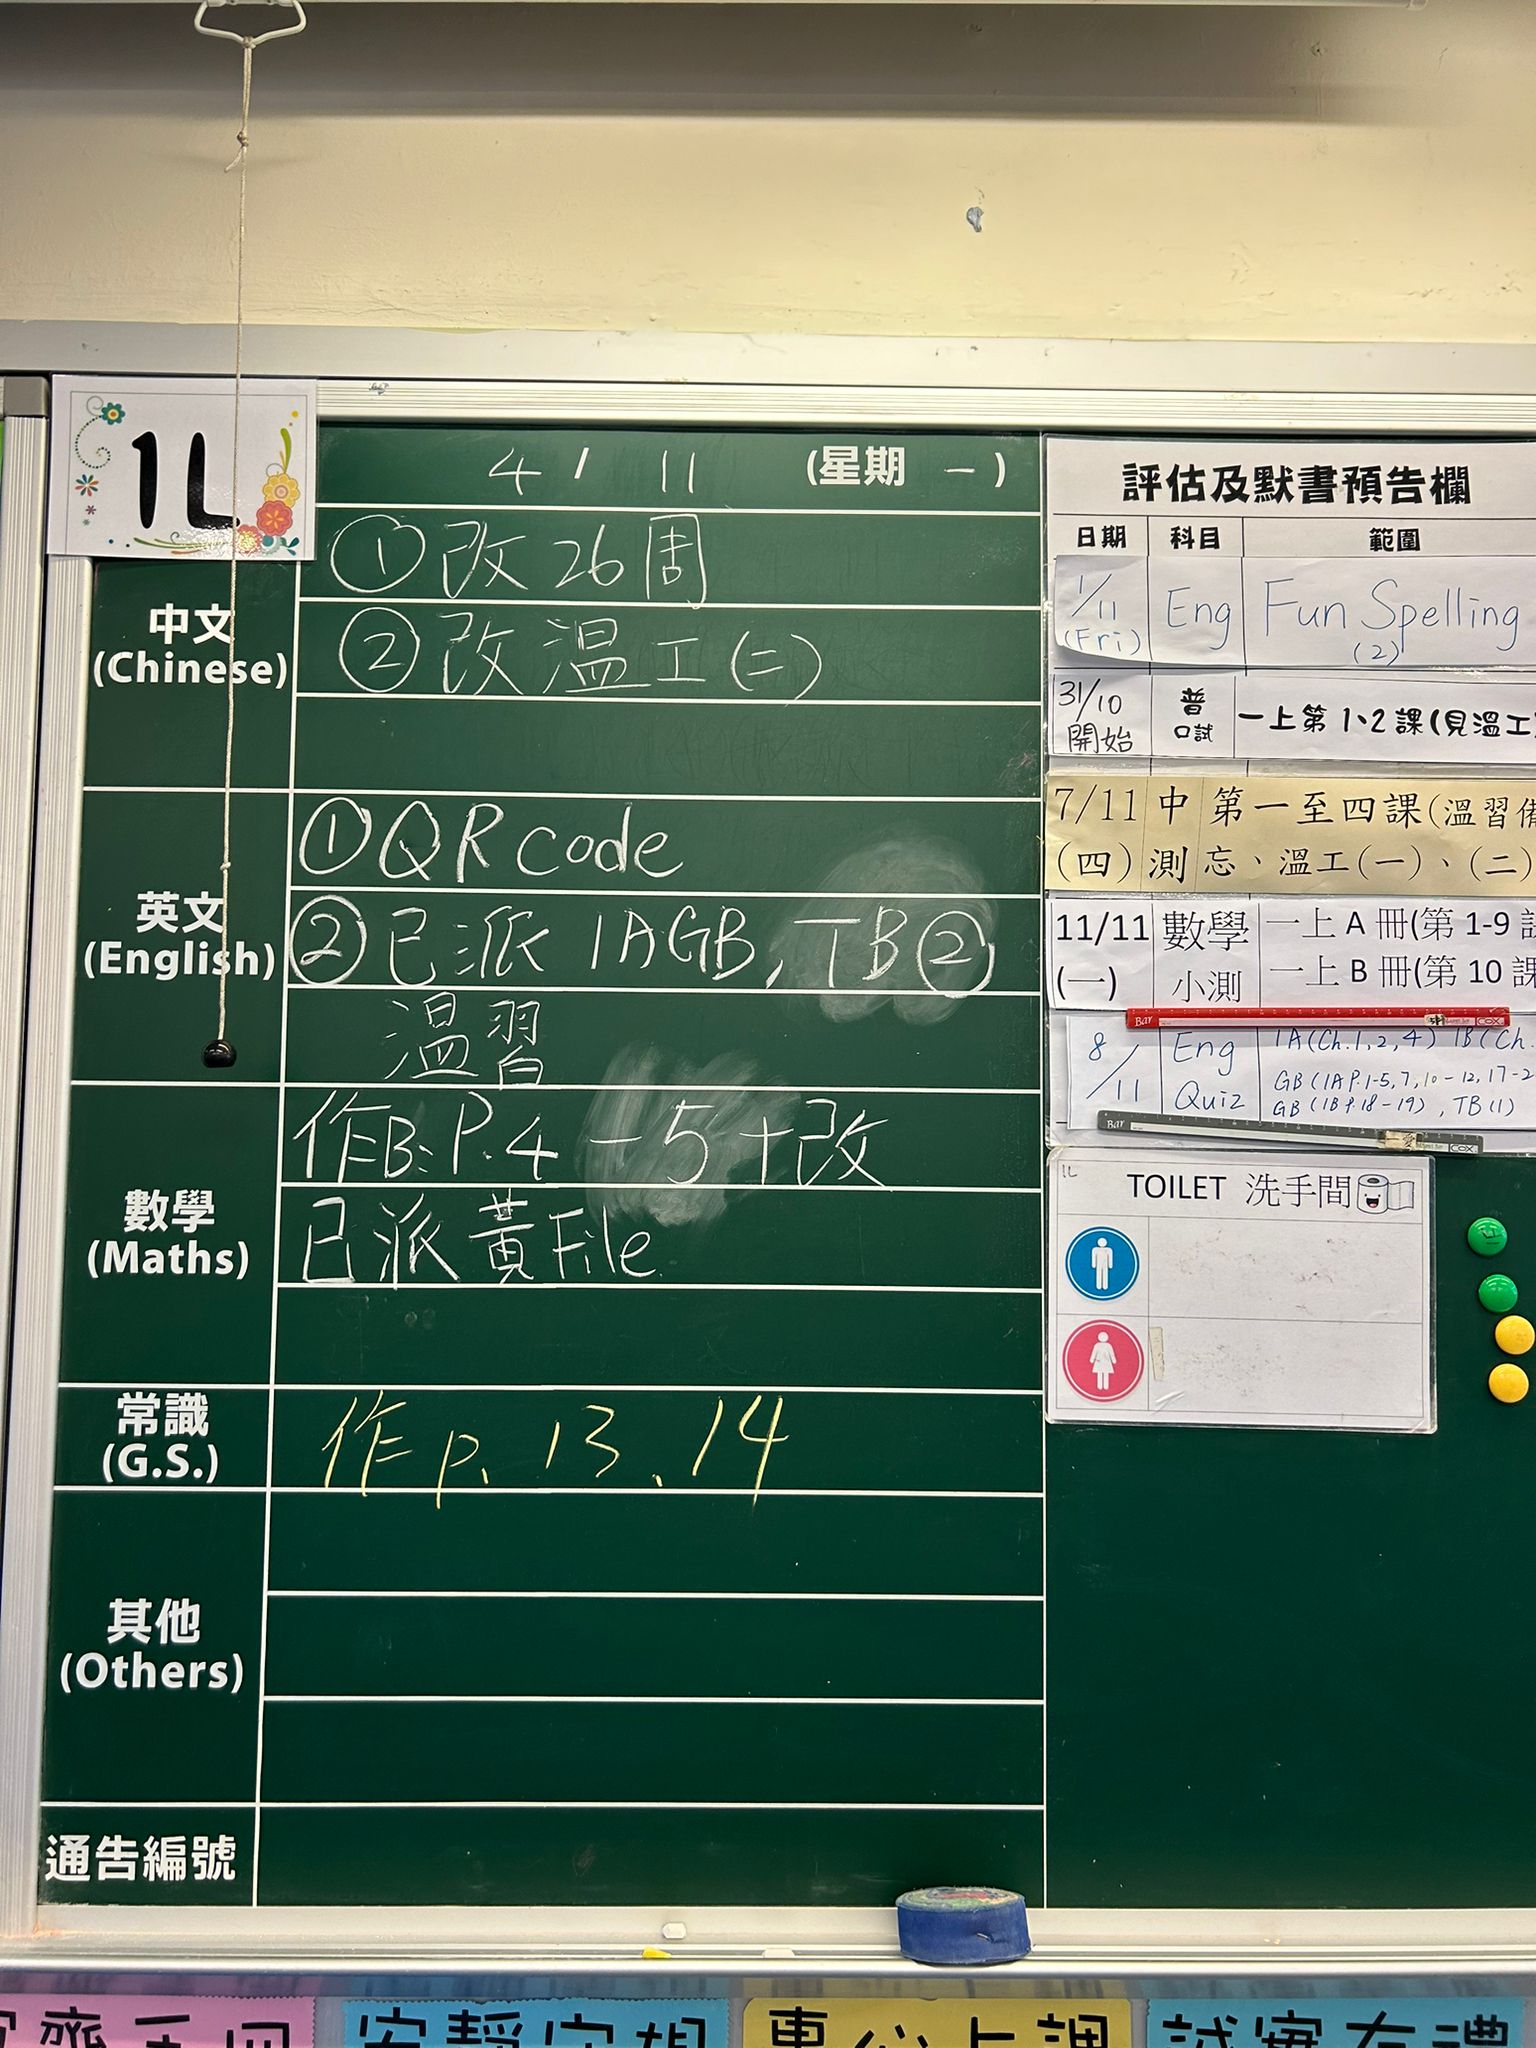 1L
4 / 11 (星期 一)
中文
(Chinese)
① 改 26 周
② 改 溫工(二)
英文
(English)
① QR code
② 已派 1A GB, TB②
溫習
數學
(Maths)
作B: P.4-5+改
已派黃File
常識
(G.S.)
作p. 13、14
其他
(Others)
通告編號
評估及默書預告欄
日期 科目 範圍
1/11 (Fri) Eng Fun Spelling (2)
31/10 開始 普 口試 一上第1、2課(見溫工)
7/11 中 第一至四課(溫習
(四) 測 忘、溫工(一)、(二)
11/11 數學 一上 A 冊(第 1-9
(一) 小測 一上 B 冊(第 10 課
8/11 Eng Quiz 1A (Ch.1, 2, 4) 1B (Ch.
GB (1A P.1-5, 7, 10-12, 17-2
GB (1B P.18-19), TB(1)
1L
TOILET 洗手間
安靜守規
專心上課
誠實有禮